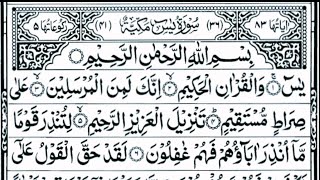 اٰیَاتُهَا ٨٣ (٣٦) سُوْرَةُ يٰسٓ مَكِّيَّةٌ (٤١) رُكُوْعَاتُهَا ٥
بِسْمِ اللّٰهِ الرَّحْمٰنِ الرَّحِيْمِ
يٰسٓ ۚ وَالْقُرْاٰنِ الْحَكِيْمِ ۙ اِنَّكَ لَمِنَ الْمُرْسَلِيْنَ ۙ عَلٰى
صِرَاطٍ مُّسْتَقِيْمٍ ؕ تَنْزِيْلَ الْعَزِيْزِ الرَّحِيْمِ ۙ لِتُنْذِرَ قَوْمًا
مَّاۤ اُنْذِرَ اٰبَآؤُهُمْ فَهُمْ غٰفِلُوْنَ ٦ لَقَدْ حَقَّ الْقَوْلُ عَلٰۤى